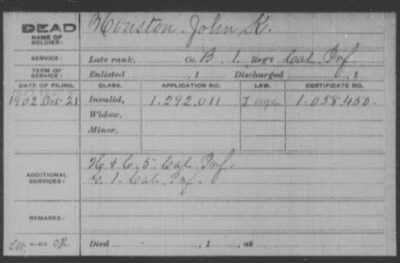 DEAD
NAME OF SOLDIER: Houston, John K.
SERVICE: Late rank, Co. B, 1 Reg't Cal. Inf.
TERM OF SERVICE: Enlisted , 1 Discharged , 1
DATE OF FILING. CLASS. APPLICATION NO. LAW. CERTIFICATE NO.
1902 Oct. 21 Invalid, 1.292.011 1.058.450.
Widow,
Minor,
ADDITIONAL SERVICES: H & C. 5" Cal. Inf.
G. 1. Cal. Inf.
REMARKS:
Died , 1 , at